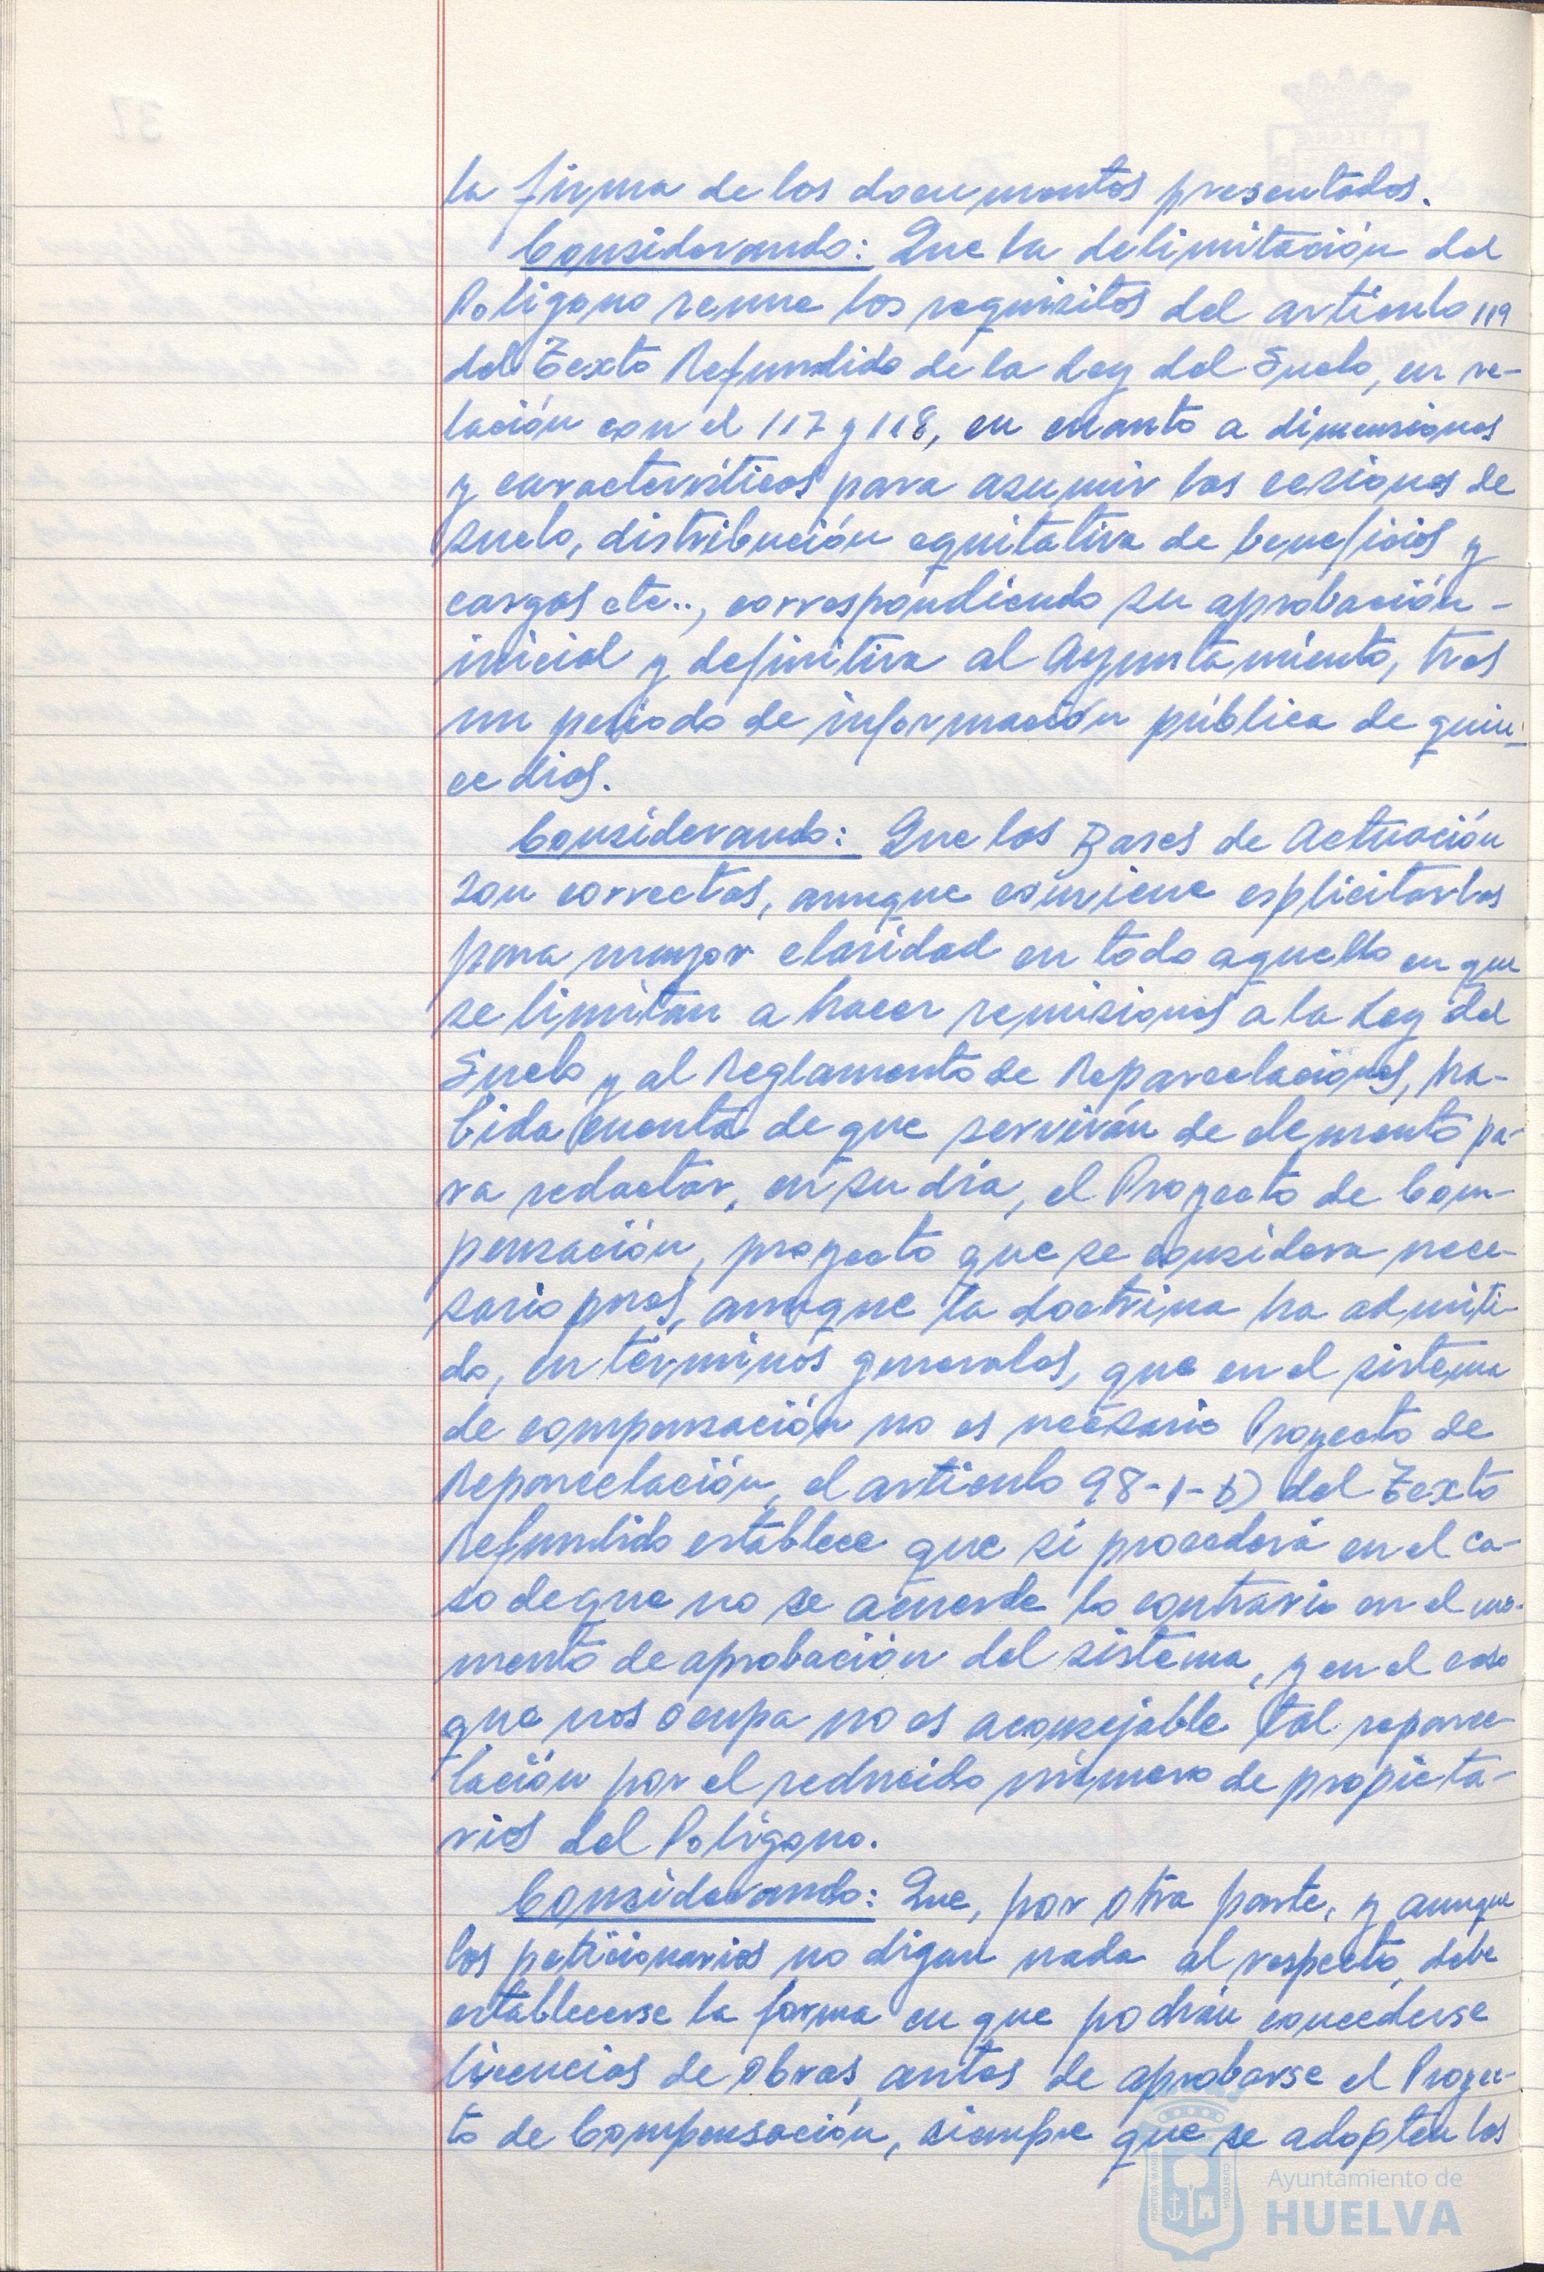 la firma de los documentos presentados.
Considerando: Que la delimitación del
Polígono reune los requisitos del artículo 119
del Texto Refundido de la Ley del Suelo, en re-
lación con el 117 y 118, en cuanto a dimensiones
y características para asumir las cesiones de
suelo, distribución equitativa de beneficios y
cargas etc.., correspondiendo su aprobación -
inicial y definitiva al Ayuntamiento, tras
un periodo de información pública de quin-
ce dias.
Considerando: Que las Bases de Actuación
son correctas, aunque conviene esplicitarlas
para mayor claridad en todo aquello en que
se limitan a hacer remisiones a la Ley del
Suelo y al Reglamento de Reparcelaciones, ha-
bida cuenta de que servirán de elemento pa-
ra redactar, en su día, el Proyecto de Com-
pensación, proyecto que se considera nece-
sario pues, aunque la doctrina ha admiti-
do, en términos generales, que en el sistema
de compensación no es necesario Proyecto de
Reparcelación, el artículo 98-1-b) del Texto
Refundido establece que si procederá en el ca-
so de que no se acuerde lo contrario en el mo-
mento de aprobación del sistema, y en el caso
que nos ocupa no es aconsejable tal reparce-
lación por el reducido número de propieta-
rios del Polígono.
Considerando: Que, por otra parte, y aunque
los peticionarios no digan nada al respecto, debe
establecerse la forma en que podrán concederse
licencias de obras, antes de aprobarse el Proyec-
to de Compensación, siempre que se adopten las
Ayuntamiento de
HUELVA